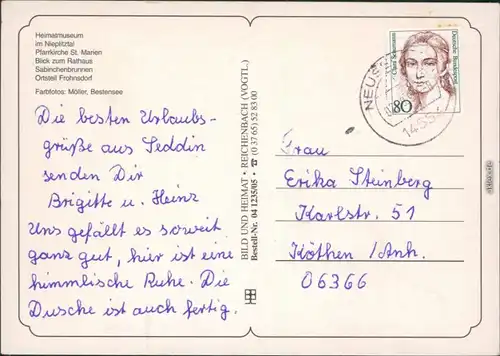 Heimatmuseum
im Nieplitztal
Pfarrkirche St.-Marien
Blick zum Rathaus
Sabinchenbrunnen
Ortsteil Frohnsdorf
Farbfotos: Möller, Bestensee
Die besten Urlaubs-
grüße aus Seddin
senden Dir
Brigitte u. Heinz
Uns gefällt es soweit
ganz gut, hier ist eine
himmlische Ruhe. Die
Dusche ist auch fertig.
BILD UND HEIMAT • REICHENBACH (VOGTL.)
Bestell-Nr. 04 1235/05 • ☎ (0 37 65) 52 83 00
Clara Schumann
Deutsche Bundespost
80
Frau
Erika Steinberg
Karlstr. 51
Köthen /Anh.
06366